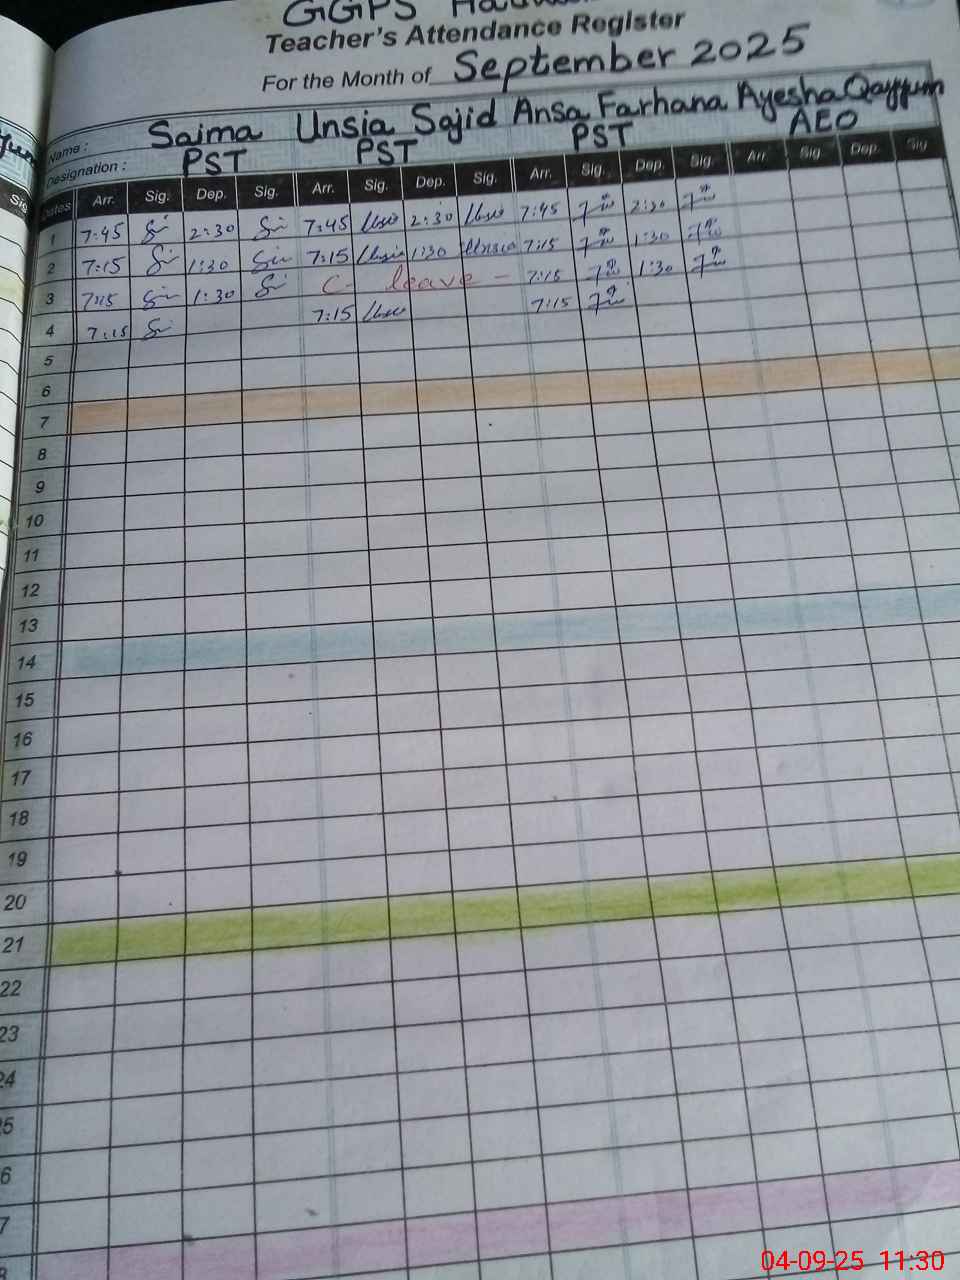 GGPS
Teacher's Attendance Register
For the Month of September 2025
Name : Saima Unsia Sajid Ansa Farhana Ayesha Qayyum
Designation : PST PST PST AEO
Dates Arr. Sig. Dep. Sig. Arr. Sig. Dep. Sig. Arr. Sig. Dep. Sig. Arr. Sig. Dep. Sig
1 7:45 2:30 7:45 2:30 7:45 2:30
2 7:15 1:30 7:15 1:30 7:15 1:30
3 7:15 1:30 C- leave - 7:15 1:30
4 7:15 7:15 7:15
5
6
7
8
9
10
11
12
13
14
15
16
17
18
19
20
21
22
23
24
5
6
7
8
04-09-25 11:30